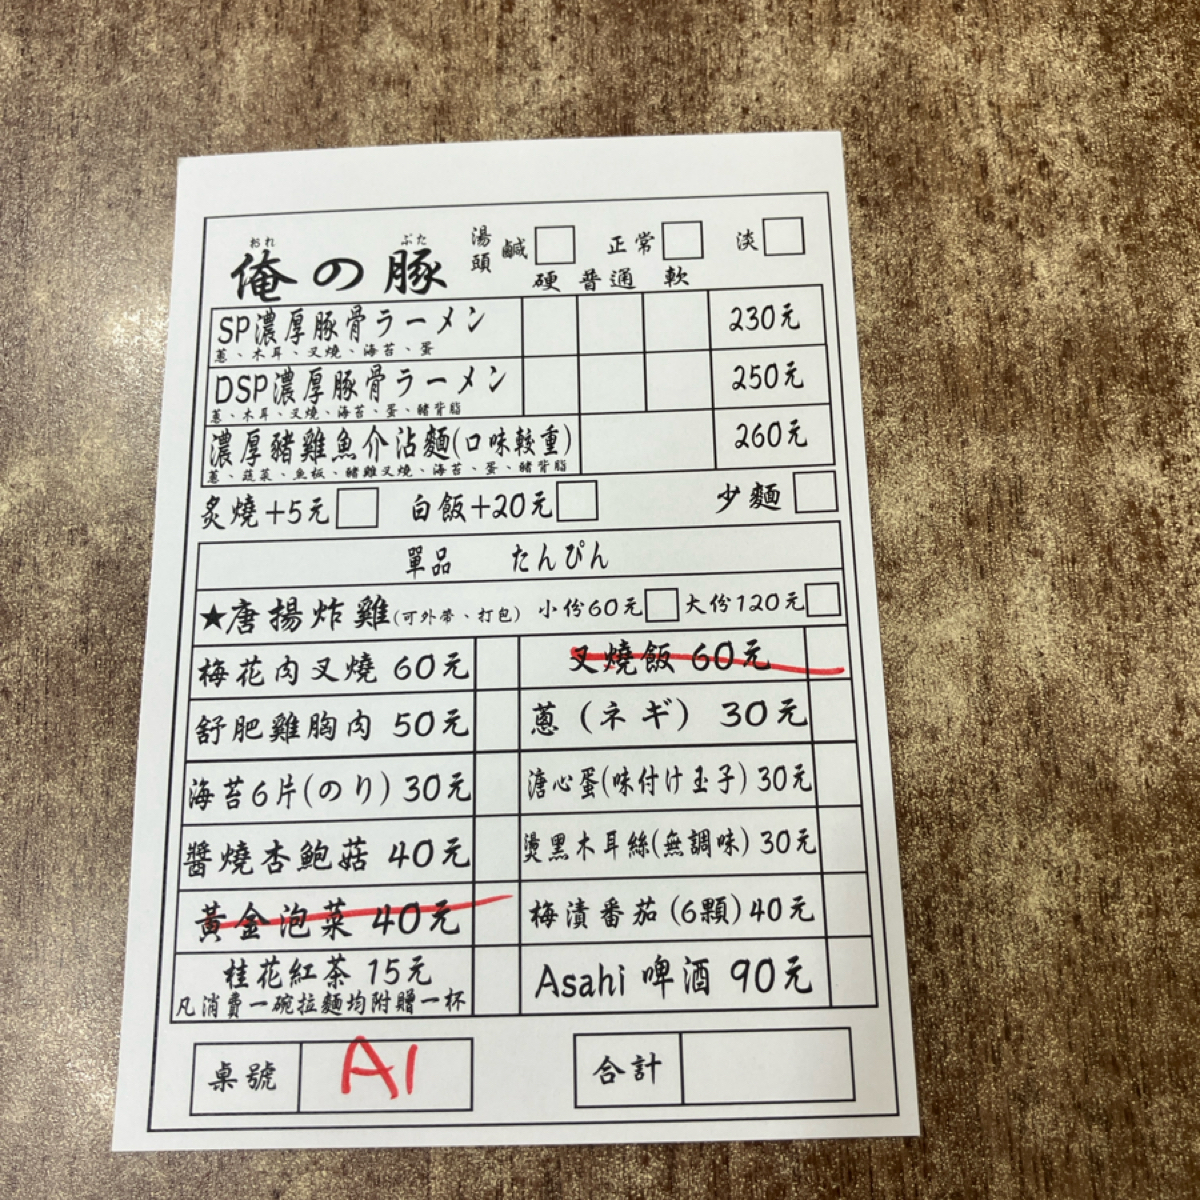 おれ ぶた
俺の豚
湯頭 鹹 正常 淡
硬 普通 軟
SP濃厚豚骨ラーメン 230元
蔥、木耳、叉燒、海苔、蛋
DSP濃厚豚骨ラーメン 250元
蔥、木耳、叉燒、海苔、蛋、豬背脂
濃厚豬雞魚介沾麵(口味較重) 260元
蔥、蔬菜、魚板、豬雞叉燒、海苔、蛋、豬背脂
炙燒+5元 白飯+20元 少麵
單品 たんぴん
★唐揚炸雞(可外帶、打包) 小份60元 大份120元
梅花肉叉燒 60元 叉燒飯 60元
舒肥雞胸肉 50元 蔥(ネギ) 30元
海苔6片(のり)30元 溏心蛋(味付け玉子)30元
醬燒杏鮑菇 40元 燙黑木耳絲(無調味)30元
黃金泡菜 40元 梅漬番茄(6顆)40元
桂花紅茶 15元 Asahi 啤酒 90元
凡消費一碗拉麵均附贈一杯
桌號 A1 合計